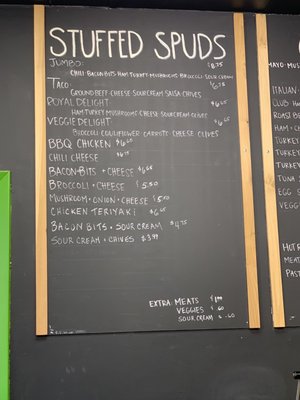 STUFFED SPUDS
JUMBO: $8.75
CHILI BACON BITS HAM TURKEY MUSHROOMS BROCCOLI SOUR CREAM
TACO $6.75
GROUND BEEF CHEESE SOUR CREAM SALSA CHIVES
ROYAL DELIGHT
HAM TURKEY MUSHROOMS CHEESE SOUR CREAM OLIVES
VEGGIE DELIGHT
BROCCOLI CAULIFLOWER CARROTS CHEESE OLIVES
BBQ CHICKEN
CHILI CHEESE
BACON BITS + CHEESE
BROCCOLI + CHEESE $5.50
MUSHROOM + ONION + CHEESE $5.50
CHICKEN TERIYAKI
BACON BITS + SOUR CREAM $4.75
SOUR CREAM + CHIVES $3.99
EXTRA: MEATS
VEGGIES .60
SOUR CREAM .60
MAYO MUS
ITALIAN
CLUB HAM
ROAST BE
HAM
TURKEY
TURKEY
TURKEY
TUNA
EGG S
VEGGIE
HOT
MEAT
PAST